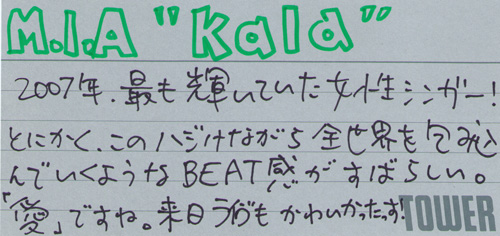 M.I.A "Kala"
2007年、最も輝いていた女性シンガー!
とにかく、このハジけながら全世界を包み込
んでいくようなBEAT感がすばらしい。
「愛」ですね。来日ライヴもかわいかったっす!
TOWER